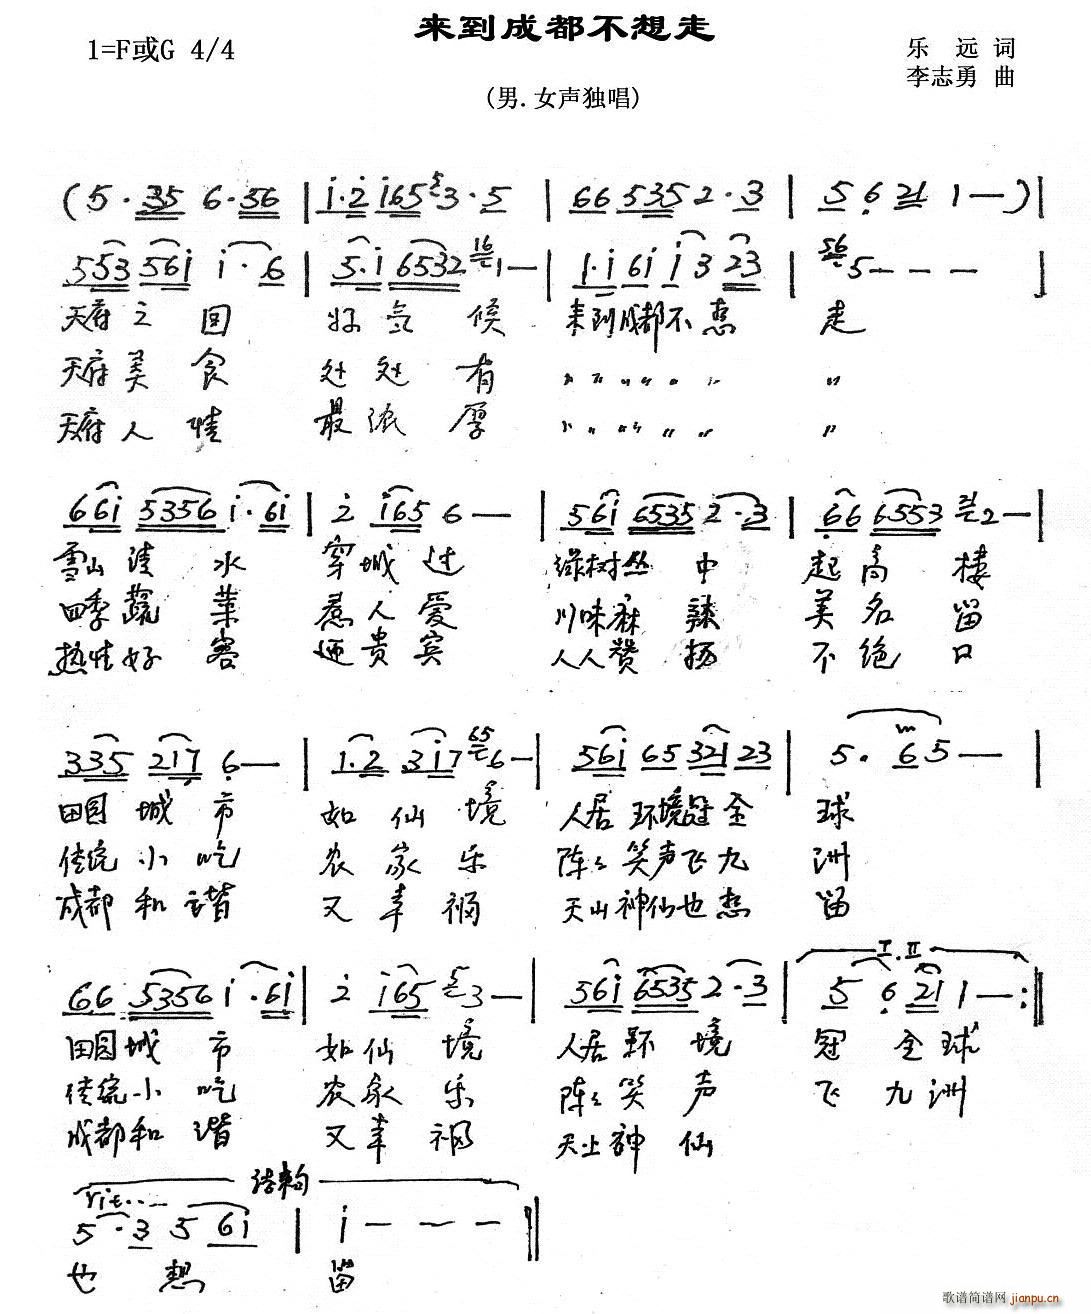 来到成都不想走
1=F或G 4/4
乐 远 词
李志勇 曲
(男.女声独唱)
(5·35 6·56 | i·2 i65 5 3·5 | 66 535 2·3 | 5 6 21 1 — )|
553 561 i·6 | 5·i 6532 16 1 — | 1·i 6i i 3 23 | 56 5 — — — ]
天府之国 好气候 来到成都不想 走
天府美食 处处有 〃 〃 〃 〃 〃 〃 〃
天府人情 最浓厚 〃 〃 〃 〃 〃 〃 〃
66i 5356 i·6i | 2 i65 6 — | 56i 6535 2·3 | 66 6553 21 2 — |
雪山清水 穿城过 绿树丛中 起高楼
四季蔬菜 惹人爱 川味麻辣 美名留
热情好客 迎贵宾 人人赞扬 不绝口
335 217 6 — | 1·2 3i7 65 6 — | 56i 65 321 23 | 5· 6 5 — |
田园城市 如仙境 人居环境冠全 球
传统小吃 农家乐 阵々笑声飞九 洲
成都和谐 又幸福 天上神仙也想 留
I.II
66 5356 i·6i | 2 i65 5 3 — | 56i 6535 2·3 | 5 6 21 1 — :‖
田园城市 如仙境 人居环境 冠全球
传统小吃 农家乐 阵々笑声 飞九洲
成都和谐 又幸福 天上神仙
结束句
rit...
5·3 5 6i | i — — — ‖
也 想 留
歌谱简谱网
jianpu.cn